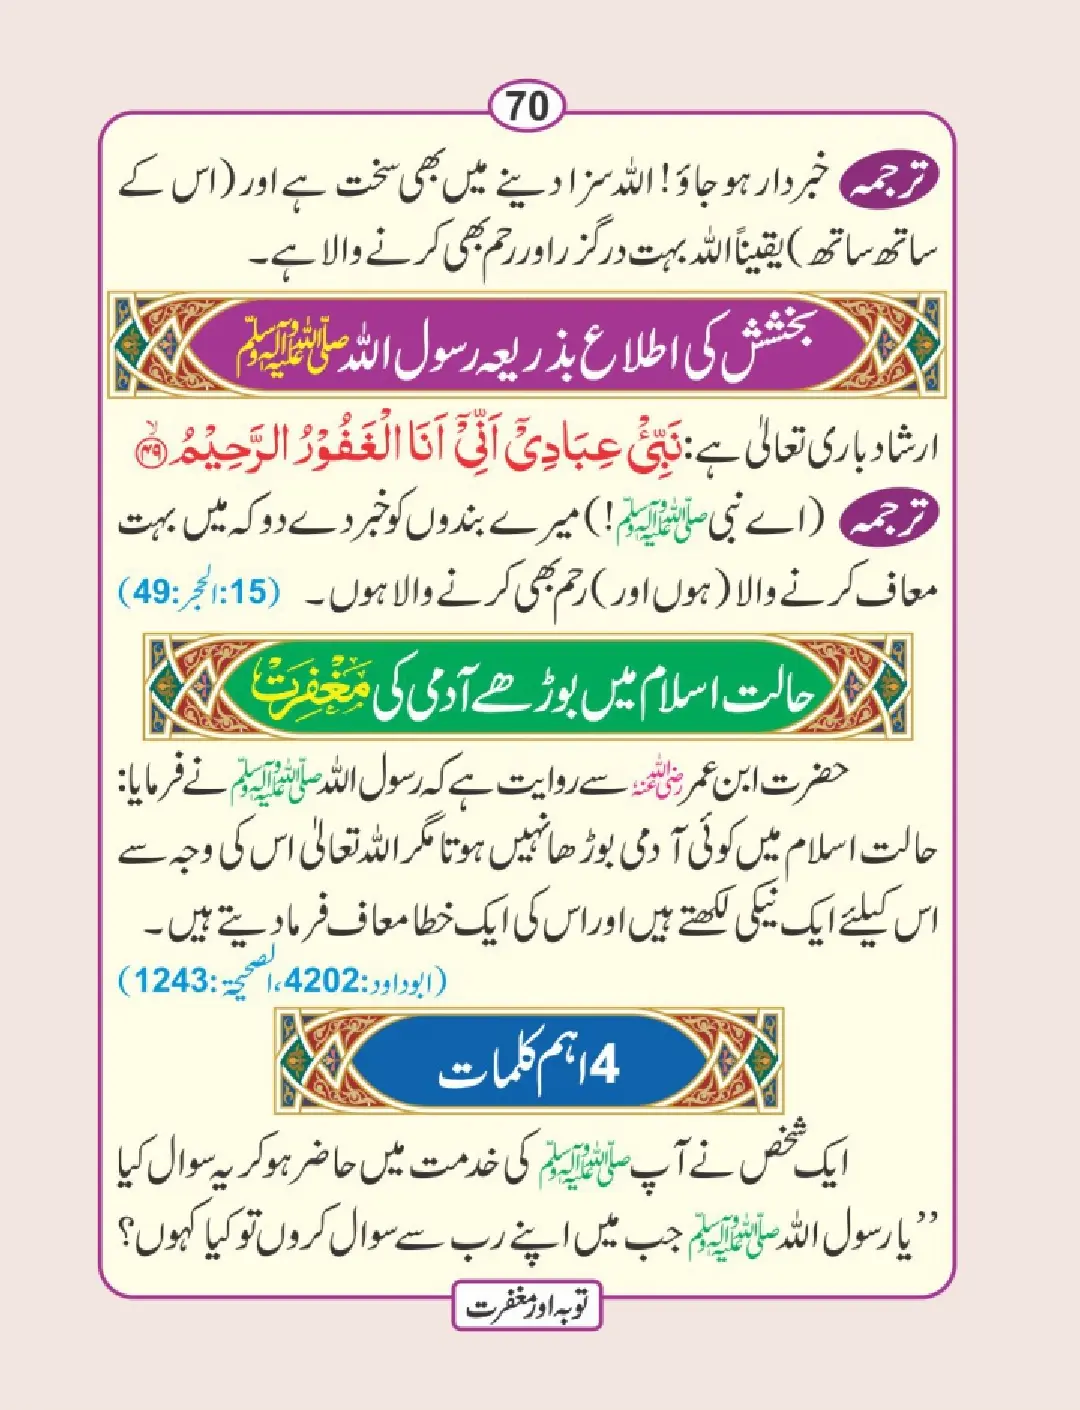 70
ترجمہ خبردار ہو جاؤ! اللہ سزا دینے میں بھی سخت ہے اور (اس کے
ساتھ ساتھ) یقیناً اللہ بہت درگزر اور رحم بھی کرنے والا ہے۔
بخشش کی اطلاع بذریعہ رسول اللہ صلی اللہ علیہ وآلہ وسلم
ارشاد باری تعالیٰ ہے: نَبِّئْ عِبَادِیْۤ اَنِّیْۤ اَنَا الْغَفُوْرُ الرَّحِیْمُ ۙ۝۴۹
ترجمہ (اے نبی صلی اللہ علیہ وآلہ وسلم!) میرے بندوں کو خبر دے دو کہ میں بہت
معاف کرنے والا (ہوں اور) رحم بھی کرنے والا ہوں۔ (15:الحجر:49)
حالت اسلام میں بوڑھے آدمی کی مَغْفِرَتْ
حضرت ابن عمر رضی اللہ عنہ سے روایت ہے کہ رسول اللہ صلی اللہ علیہ وآلہ وسلم نے فرمایا:
حالت اسلام میں کوئی آدمی بوڑھا نہیں ہوتا مگر اللہ تعالیٰ اس کی وجہ سے
اس کیلئے ایک نیکی لکھتے ہیں اور اس کی ایک خطا معاف فرما دیتے ہیں۔
(ابوداود:4202، الصحیحۃ:1243)
4 اہم کلمات
ایک شخص نے آپ صلی اللہ علیہ وآلہ وسلم کی خدمت میں حاضر ہو کر یہ سوال کیا
’’یا رسول اللہ صلی اللہ علیہ وآلہ وسلم جب میں اپنے رب سے سوال کروں تو کیا کہوں؟
توبہ اور مغفرت